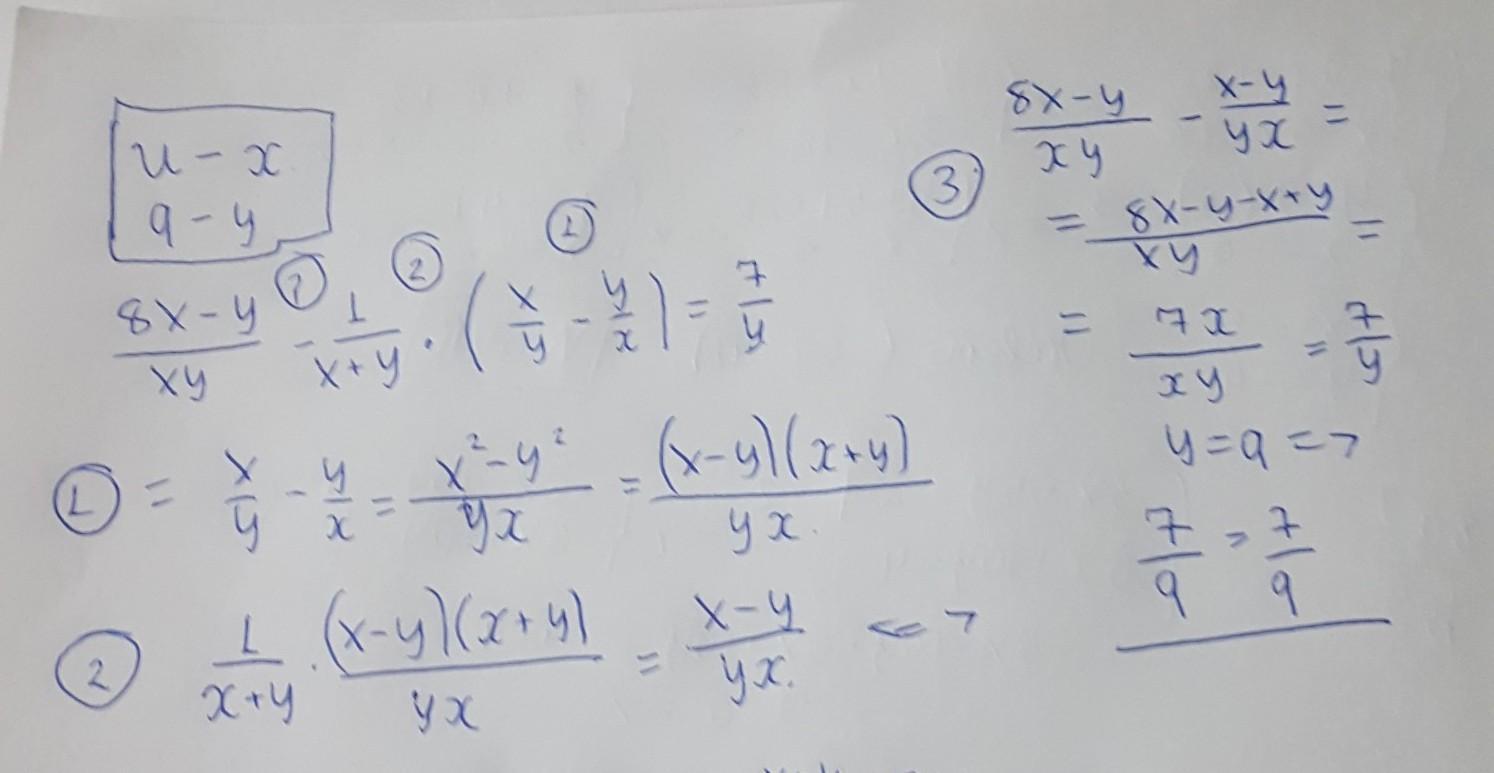 u - x
a - y
① ② ③
(8x-y)/(xy) - 1/(x+y) · (x/y - y/x) = 7/y
① = x/y - y/x = (x²-y²)/(yx) = ((x-y)(x+y))/(yx).
② 1/(x+y) · ((x-y)(x+y))/(yx) = (x-y)/(yx). <=>
③ (8x-y)/(xy) - (x-y)/(yx) =
= (8x-y-x+y)/(xy) =
= (7x)/(xy) = 7/y
y = a =>
7/a = 7/a